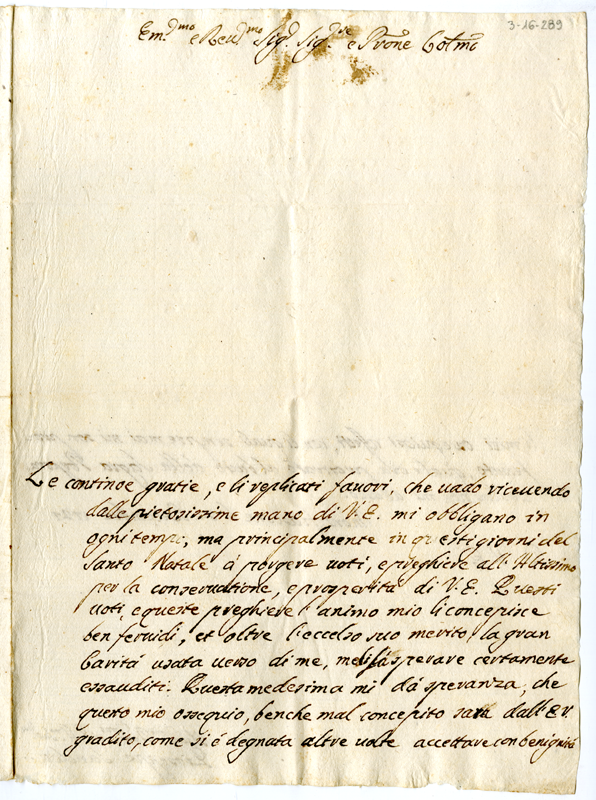 3-16-289
Em.mo e Reud.mo Sig.r Sig.re e Prone Colmo
Le continoe gratie, e li replicati fauori, che uado riceuendo
dalle pietosissime mano di V.E. mi obbligano in
ogni tempo, ma principalmente in questi giorni del
Santo Natale à porgere uoti, e preghiere all'Altissimo
per la conseruatione, e prosperità di V.E. Questi
uoti, e queste preghiere l'animo mio li concepisce
ben feruidi, et oltre l'eccelso suo merito, la gran
Carità usata uerso di me, me li fà sperare certamente
essauditi. Questa medesima mi dà speranza, che
questo mio ossequio, benche mal concepito sarà dall'E.V.
gradito, come si è degnata altre uolte accettare con benignità